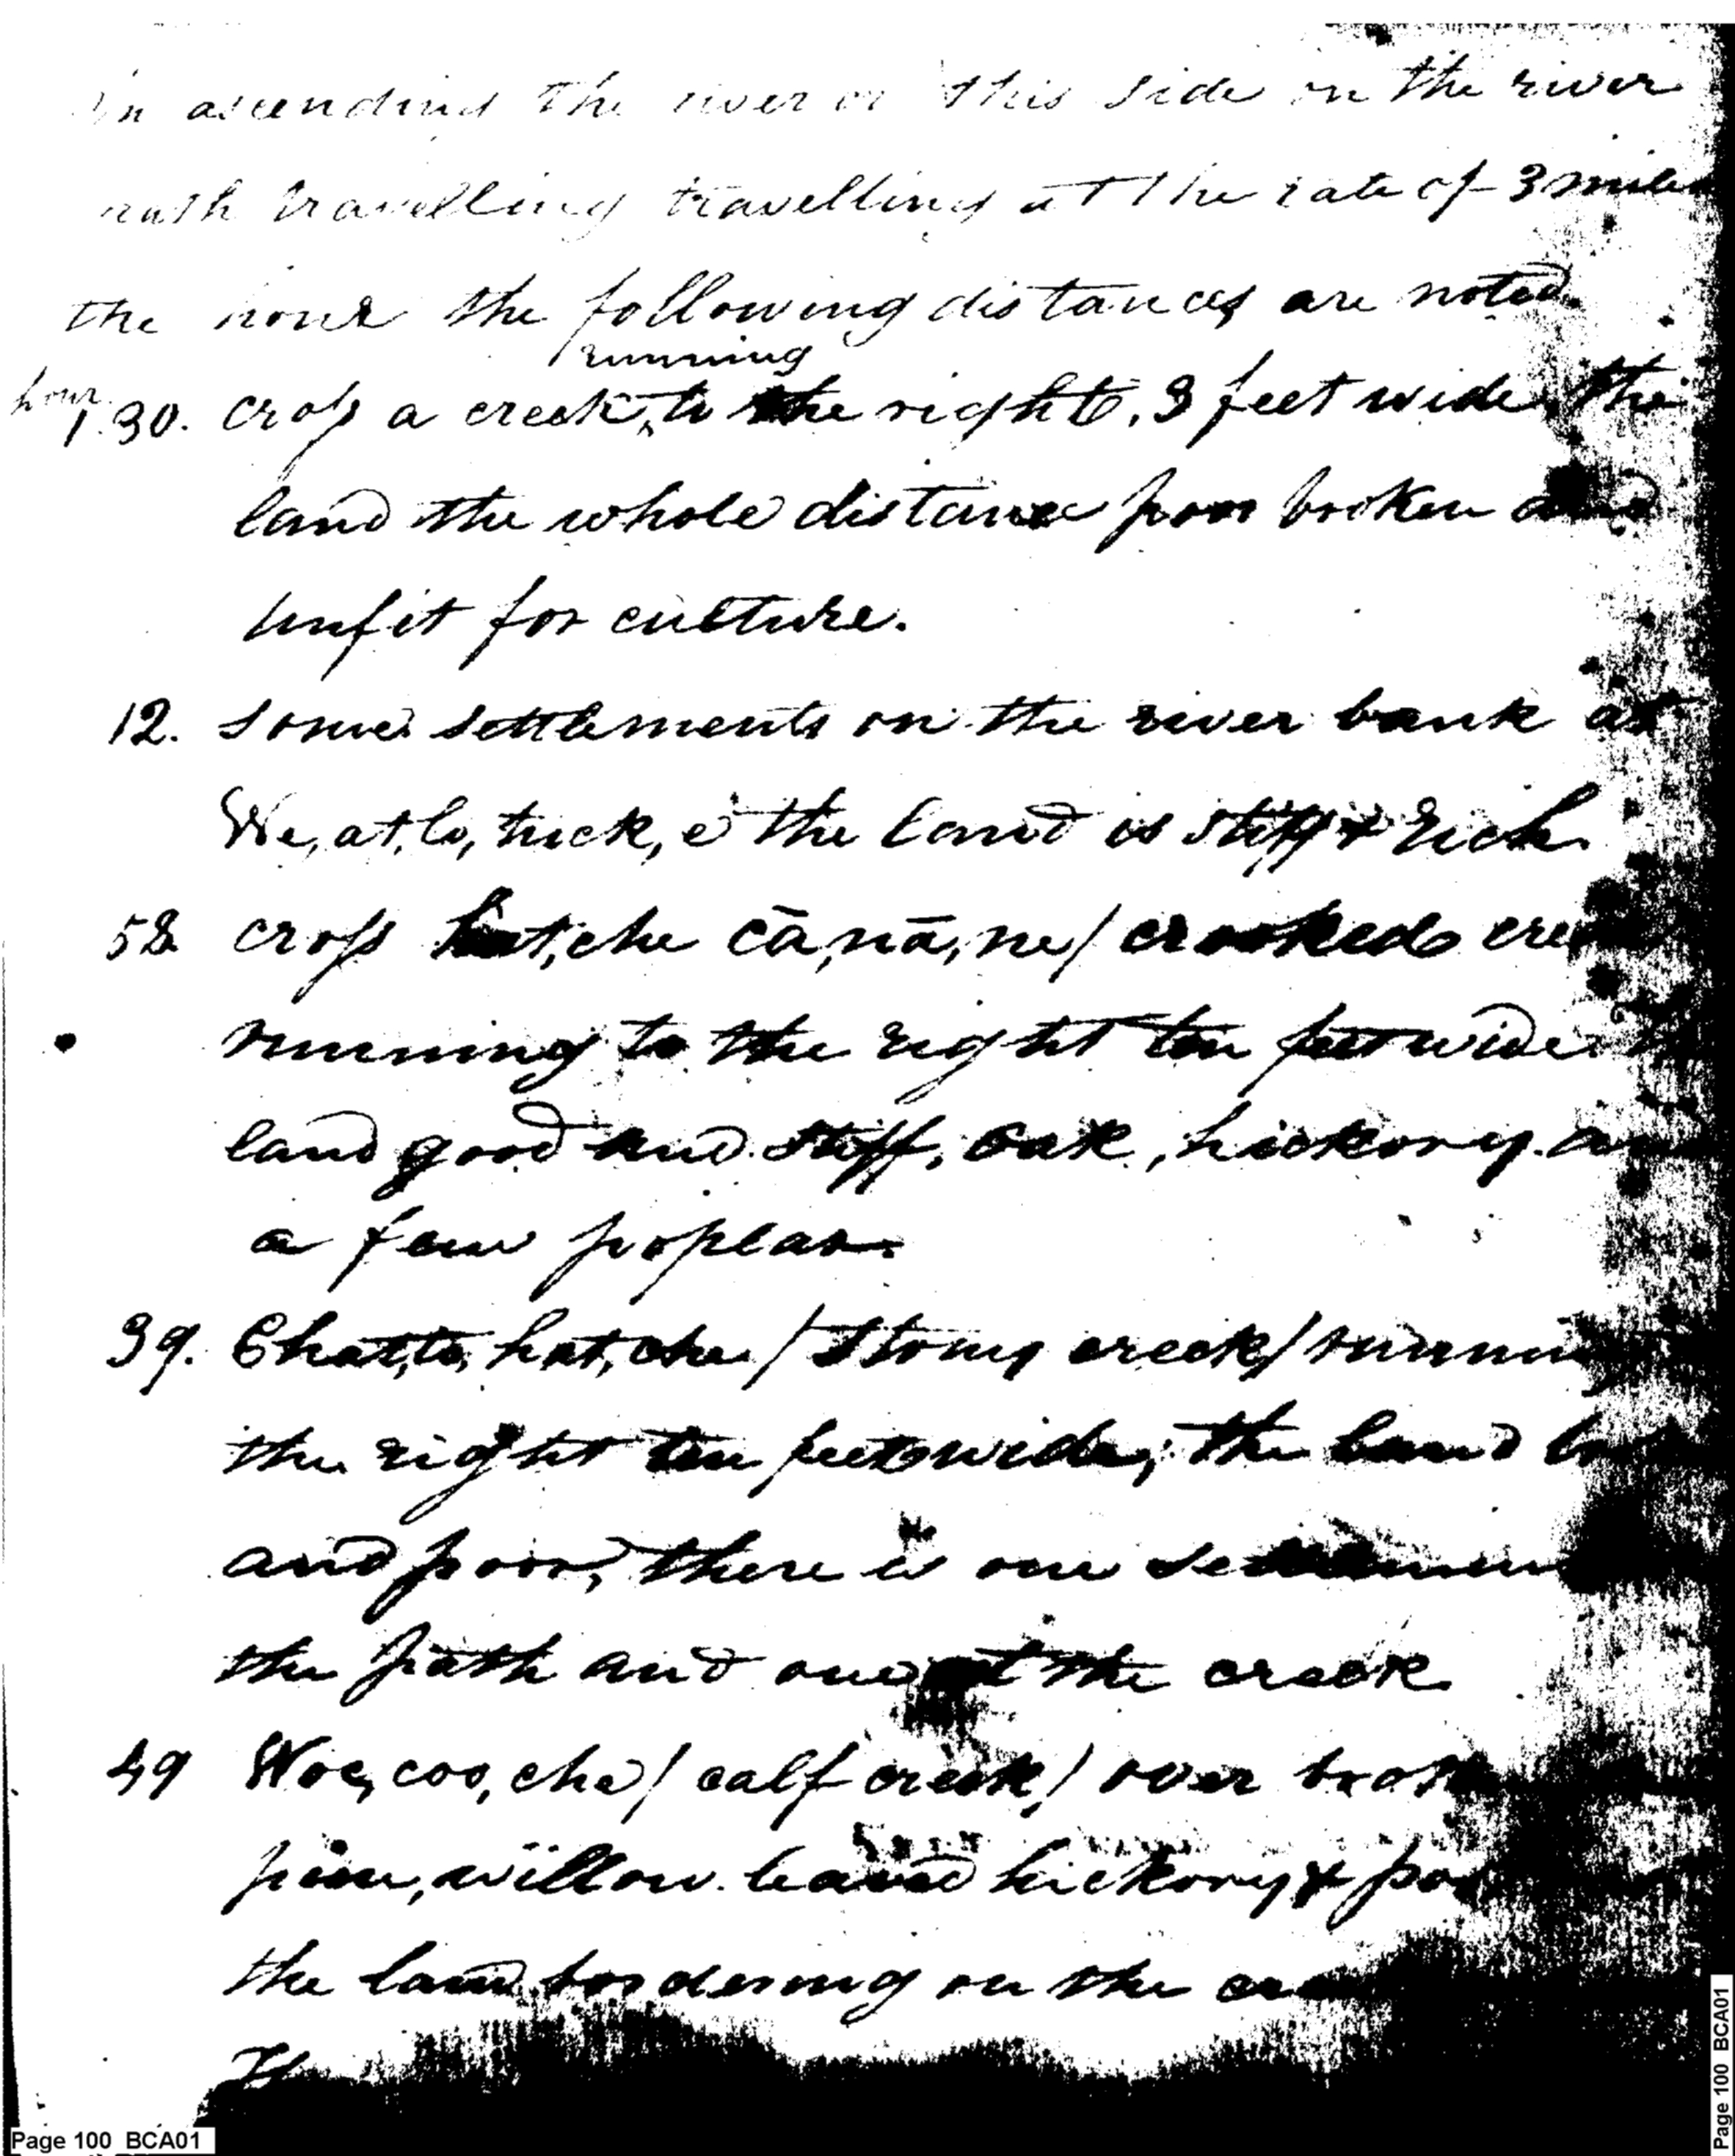 In ascending the river on this side on the river
path travelling travelling at the rate of 3 miles
the hour the following distances are noted.
running
hour
1.30. cross a creek, to the right, 3 feet wide, the
land the whole distance poor broken and
unfit for culture.
12. some settlements on the river bank at
We, at, lo, tuck, e the land is stiff & rich.
58 cross hat, che cā, nā, ne / crooked
running to the right ten feet wide.
land good and stiff, oak, hickory.
a few poplar.
39. Chat, to, hat, che / stony creek /
the right ten feet wide, the land
and poor, there is one
the path and one at the creek
49 Woc, coo, che / calf creek / over
pine, willow leaved hickory &
the land bordering on the
Page 100 BCA01
Page 100 BCA01